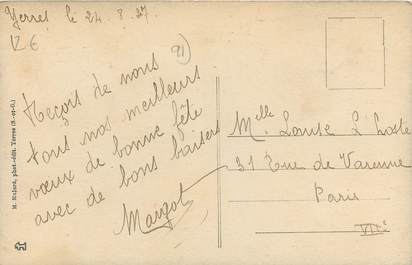 Yerres le 24.8.37
12 €
91
Reçois de nous
tous nos meilleurs
vœux de bonne fête
avec de bons baisers
Margot
Melle Louise L'Hoste
31 Rue de Varenne
Paris
VIIe
phot.-édit. Yerres (S.-et-O.)